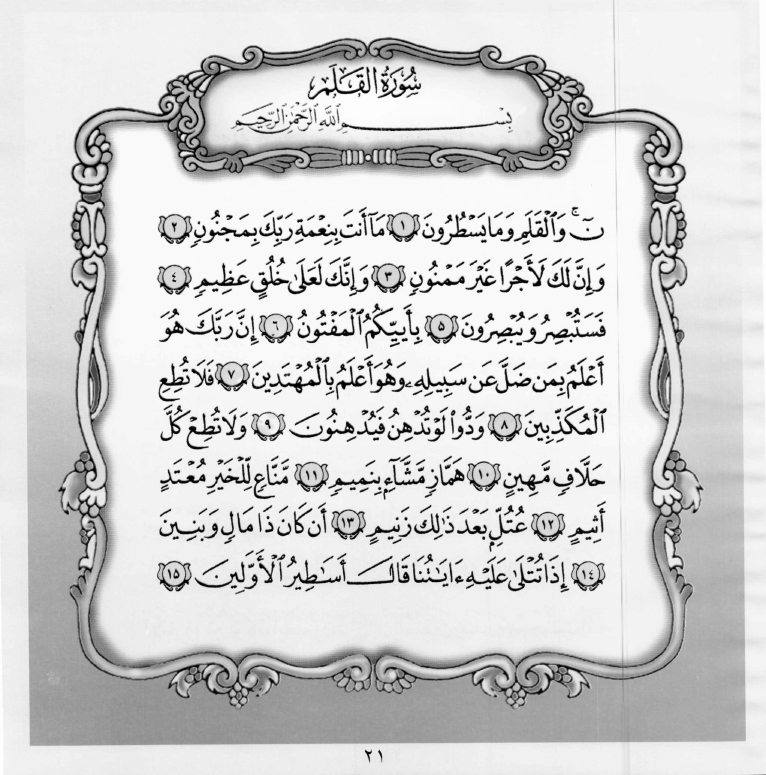 سُورَةُ القَلَمِ
بِسْمِ ٱللَّهِ ٱلرَّحْمَٰنِ ٱلرَّحِيمِ
نٓ ۚ وَٱلْقَلَمِ وَمَا يَسْطُرُونَ ١ مَآ أَنتَ بِنِعْمَةِ رَبِّكَ بِمَجْنُونٍ ٢
وَإِنَّ لَكَ لَأَجْرًا غَيْرَ مَمْنُونٍ ٣ وَإِنَّكَ لَعَلَىٰ خُلُقٍ عَظِيمٍ ٤
فَسَتُبْصِرُ وَيُبْصِرُونَ ٥ بِأَييِّكُمُ ٱلْمَفْتُونُ ٦ إِنَّ رَبَّكَ هُوَ
أَعْلَمُ بِمَن ضَلَّ عَن سَبِيلِهِۦ وَهُوَ أَعْلَمُ بِٱلْمُهْتَدِينَ ٧ فَلَا تُطِعِ
ٱلْمُكَذِّبِينَ ٨ وَدُّوا۟ لَوْ تُدْهِنُ فَيُدْهِنُونَ ٩ وَلَا تُطِعْ كُلَّ
حَلَّافٍ مَّهِينٍ ١٠ هَمَّازٍ مَّشَّآءٍۭ بِنَمِيمٍ ١١ مَّنَّاعٍ لِّلْخَيْرِ مُعْتَدٍ
أَثِيمٍ ١٢ عُتُلٍّۭ بَعْدَ ذَٰلِكَ زَنِيمٍ ١٣ أَن كَانَ ذَا مَالٍ وَبَنِينَ
١٤ إِذَا تُتْلَىٰ عَلَيْهِ ءَايَٰتُنَا قَالَ أَسَٰطِيرُ ٱلْأَوَّلِينَ ١٥
٢١